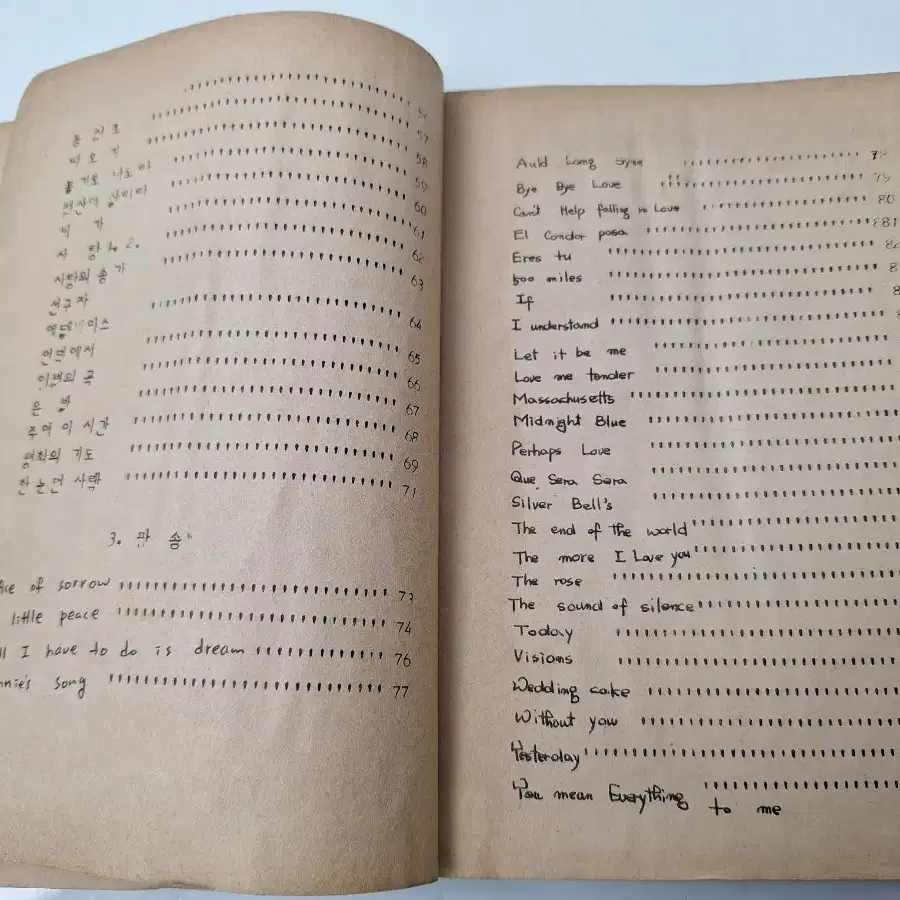 57
58
청산에 살리라 59
비가 60
사랑 No 2. 61
사랑의 송가 62
선구자 63
에델바이스 64
언덕에서 65
이별의 곡 66
은발 67
주여 이 시간 68
평화의 기도 69
사람 71
3. 팝송
of sorrow 73
little peace 74
I have to do is dream 76
song 77
Auld Lang Syne 78
Bye Bye Love 79
Can't Help falling in Love 80
El Condor pasa 881
Eres tu
500 miles
If
I understand
Let it be me
Love me tender
Massachusetts
Midnight Blue
Perhaps Love
Que Sera Sera
Silver Bell's
The end of the world
The more I Love you
The rose
The sound of silence
Today
Visions
Wedding cake
Without you
Yesterday
You mean Everything to me